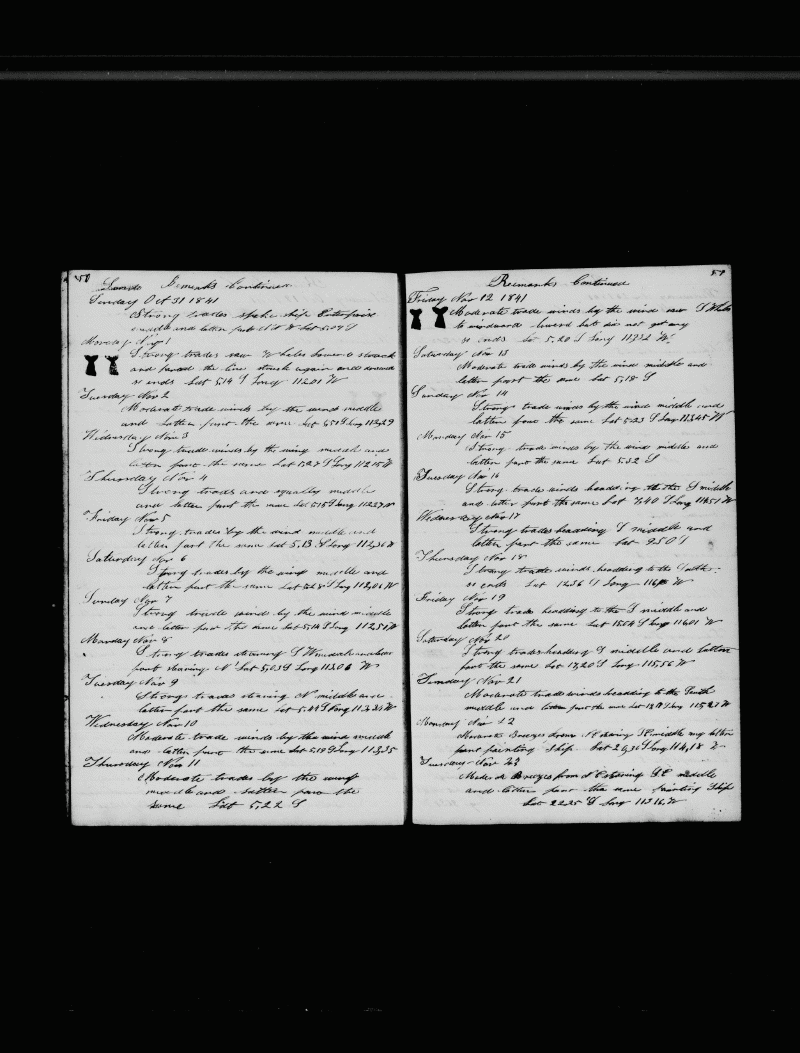 50
Remarks Continued
Sunday Oct 31 1841
Strong trades spoke ship Enterprise
middle and latter part Lat 5,04 S
Monday Nov 1
Strong trades saw Whales lowered struck
and parted the line struck again and
so ends Lat 5,14 S Long 112,01 W
Tuesday Nov 2
Moderate trade winds by the wind middle
and latter part the same Lat S Long 112,29
Wednesday Nov 3
Strong trade winds by the wind middle and
latter part the same Lat 5,27 S Long 112,15 W
Thursday Nov 4
Strong trades and squally middle
and latter part the same Lat 5,15 S Long 112,27 W
Friday Nov 5
Strong trades by the wind middle and
latter part the same Lat 5,13 S Long 112,36 W
Saturday Nov 6
Strong trades by the wind middle and
latter part the same Lat S Long W
Sunday Nov 7
Strong trade wind by the wind middle
and latter part the same Lat 5,14 S Long 112,51 W
Monday Nov 8
Strong trades steering S W middle and latter
part steering N Lat 5,03 S Long 113,06 W
Tuesday Nov 9
Strong trades steering N middle and
latter part the same Lat 5,24 S Long 113,24 W
Wednesday Nov 10
Moderate trade winds by the wind middle
and latter part the same Lat 5,19 S Long 113,35
Thursday Nov 11
Moderate trades by the wind
middle and latter part the
same Lat 5,22 S
51
Remarks Continued
Friday Nov 12 1841
Moderate trade winds by the wind saw S Whales
to windward lowerd but did not get any
so ends Lat 5,20 S Long 113,32 W
Saturday Nov 13
Moderate trade winds by the wind middle and
latter part the same Lat 5,18 S
Sunday Nov 14
Strong trade winds by the wind middle and
latter part the same Lat 5,23 S Long 113,45 W
Monday Nov 15
Strong trade winds by the wind middle and
latter part the same Lat 5,32 S
Tuesday Nov 16
Strong trade winds heading to the S middle
and latter part the same Lat 7,40 S Long 114,51 W
Wednesday Nov 17
Strong trades heading S middle and
latter part the same Lat 9,50 S
Thursday Nov 18
Strong trade winds heading to the South
so ends Lat 12,36 S Long W
Friday Nov 19
Strong trade heading to the S middle and
latter part the same Lat 15,54 S Long 116,01 W
Saturday Nov 20
Strong trades heading S middle and latter
part the same Lat 17,20 S Long 115,56 W
Sunday Nov 21
Moderate trade winds heading to the South
middle and latter part the same Lat S Long 115,27 W
Monday Nov 22
Moderate Breezes from N E steering S E middle and latter
part painting Ship Lat S Long 114,18 W
Tuesday Nov 23
Moderate Breezes from N E steering S E middle
and latter part the same painting Ship
Lat 22,25 S Long 113,16 W